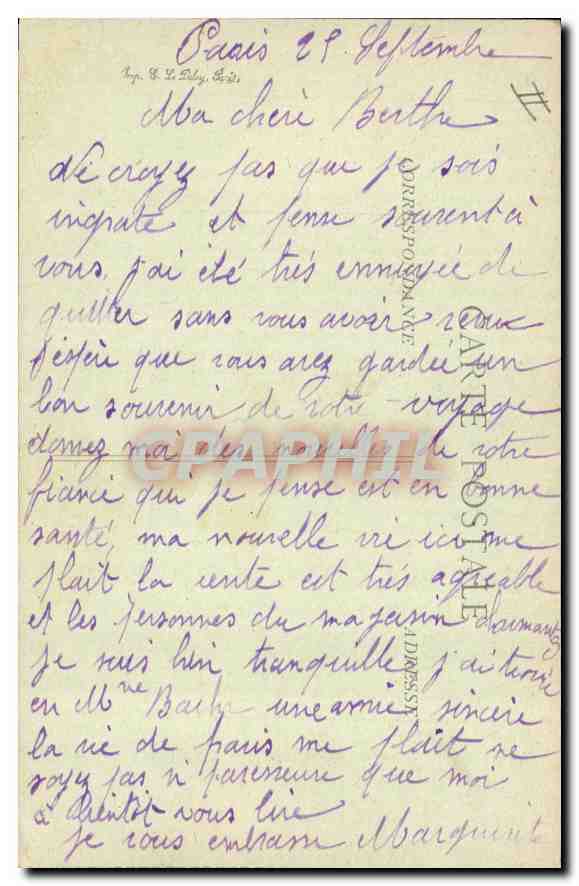 Paris 25 Septembre
II
Ma chère Berthe
Ne croyez pas que je sois
ingrate et pense souvent à
vous. j'ai été très ennuyée de
quitter sans vous avoir revu
J'espère que vous avez gardée un
bon souvenir de votre voyage
donnez moi des nouvelles de votre
fiancé qui je pense est en bonne
santé, ma nouvelle vie ici me
plait la vente est très agréable
et les personnes du magasin charmantes
je suis bien tranquille j'ai trouvé
en Mme une amie sincère
la vie de paris me plait ne
soyez pas si paresseuse que moi
à Bientôt vous lire
je vous embrasse Marguerite
CORRESPONDANCE
CARTE POSTALE
ADRESSE
CPAPHIL